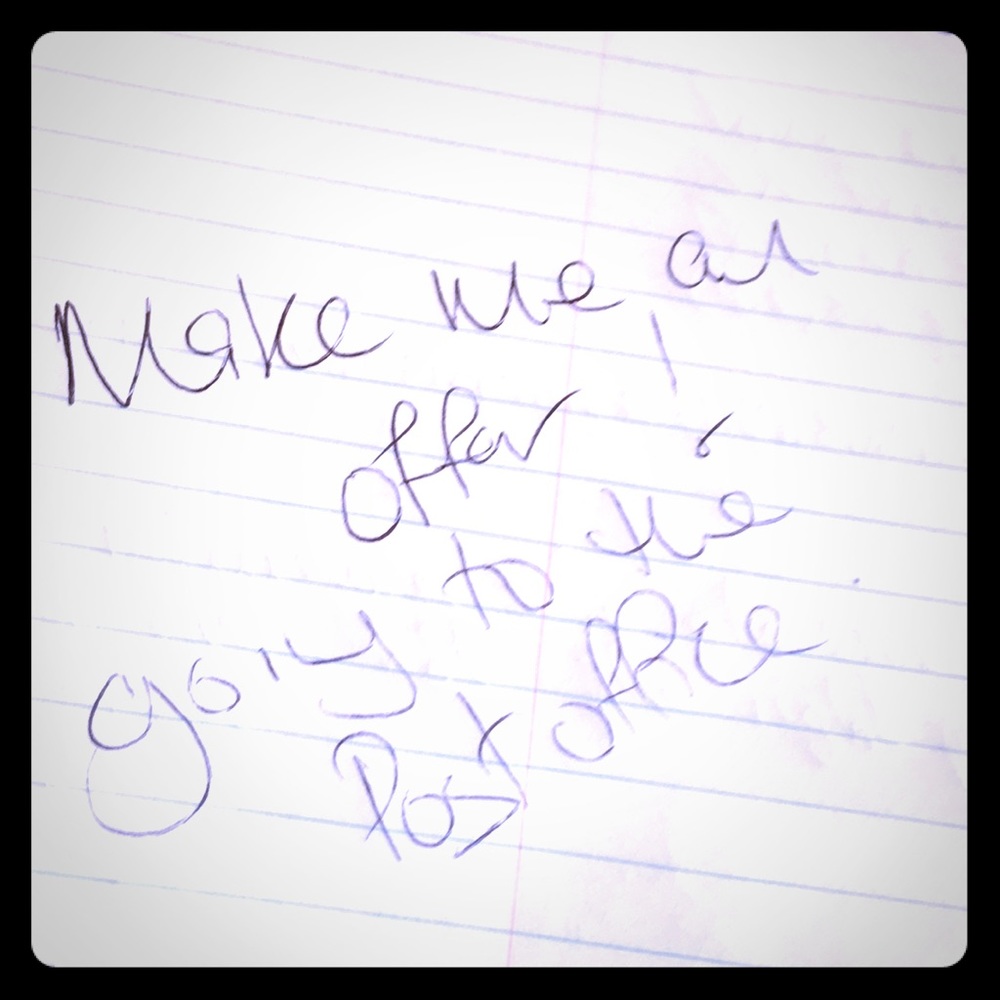 Make me an
offer !
going to the
Post office